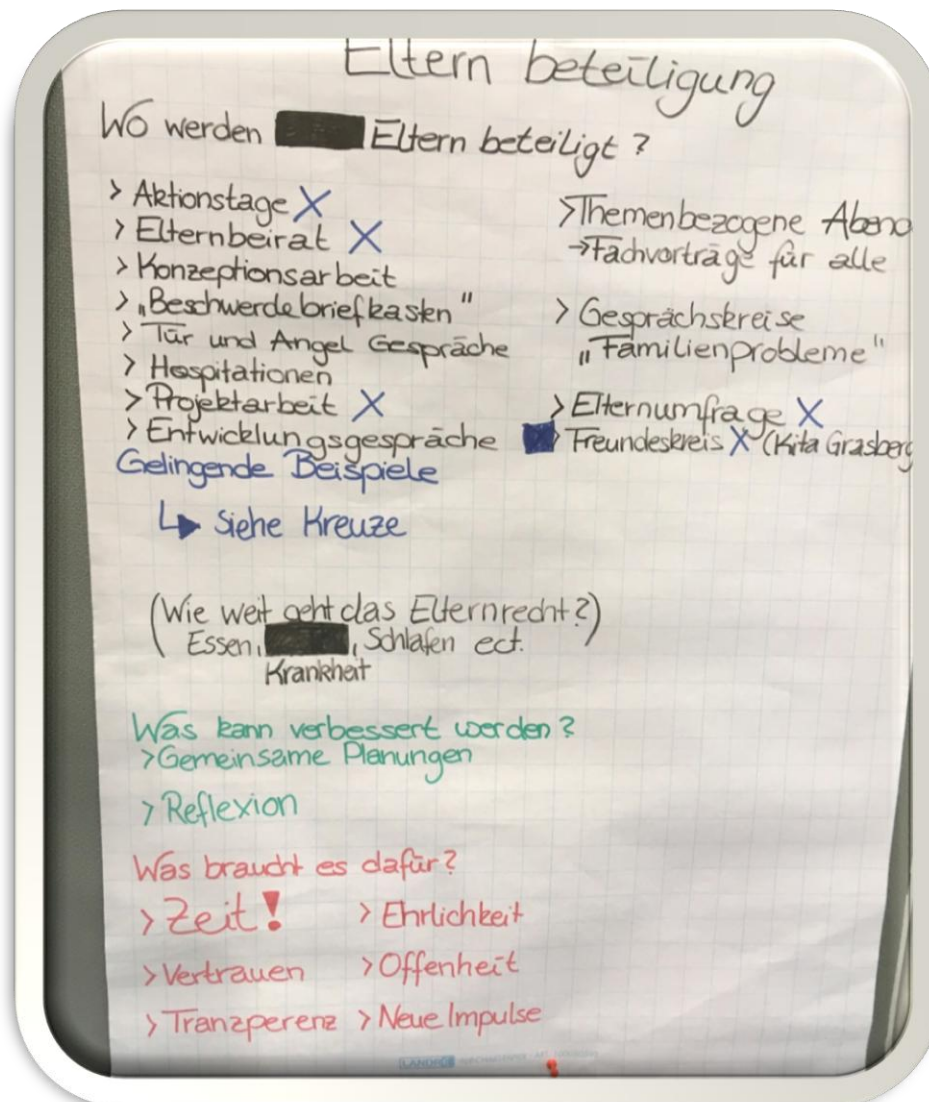 Eltern beteiligung
Wo werden Eltern beteiligt?
> Aktionstage X
> Elternbeirat X
> Konzeptionsarbeit
> „Beschwerdebriefkasten"
> Tür und Angel Gespräche
> Hospitationen
> Projektarbeit X
> Entwicklungsgespräche
> Themenbezogene Abend
→ Fachvorträge für alle
> Gesprächskreise
„Familienprobleme"
> Elternumfrage X
> Freundeskreis X (Kita Grasberg
Gelingende Beispiele
↳ Siehe Kreuze
(Wie weit geht das Elternrecht?)
( Essen, , Schlafen ect. )
Krankheit
Was kann verbessert werden?
> Gemeinsame Planungen
> Reflexion
Was braucht es dafür?
> Zeit! > Ehrlichkeit
> Vertrauen > Offenheit
> Tranzperenz > Neue Impulse